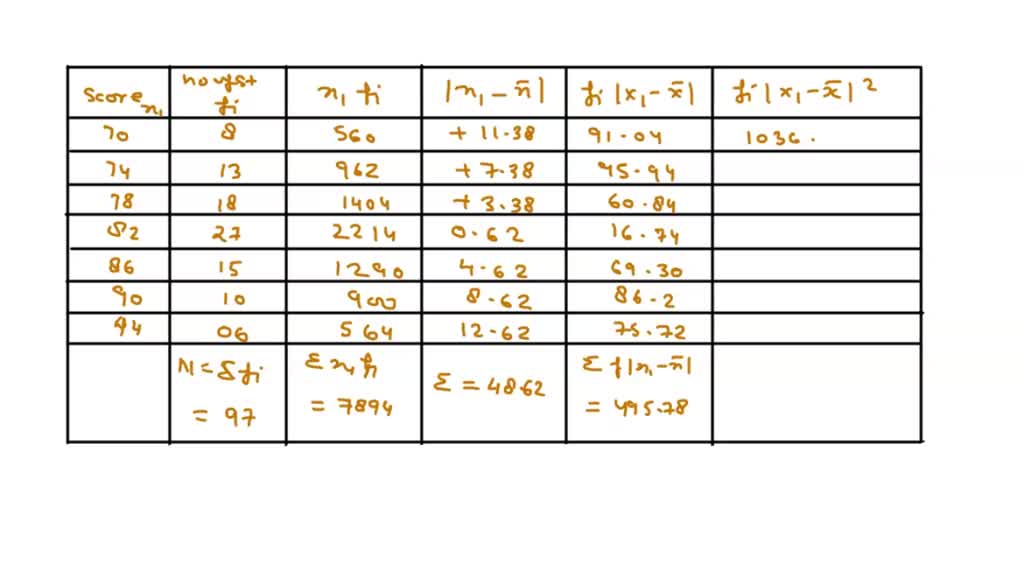 Score x₁ | no of st fi | x₁ fi | |x₁ - x̄| | fi |x₁ - x̄| | fi |x₁ - x̄|²
70 | 8 | 560 | + 11.38 | 91.04 | 1036.
74 | 13 | 962 | + 7.38 | 95.94
78 | 18 | 1404 | + 3.38 | 60.84
82 | 27 | 2214 | 0.62 | 16.74
86 | 15 | 1290 | 4.62 | 69.30
90 | 10 | 900 | 8.62 | 86.2
94 | 06 | 564 | 12.62 | 75.72
N = Σfi = 97 | Σ x₁fi = 7894 | Σ = 48.62 | Σ f|x₁ - x̄| = 495.78